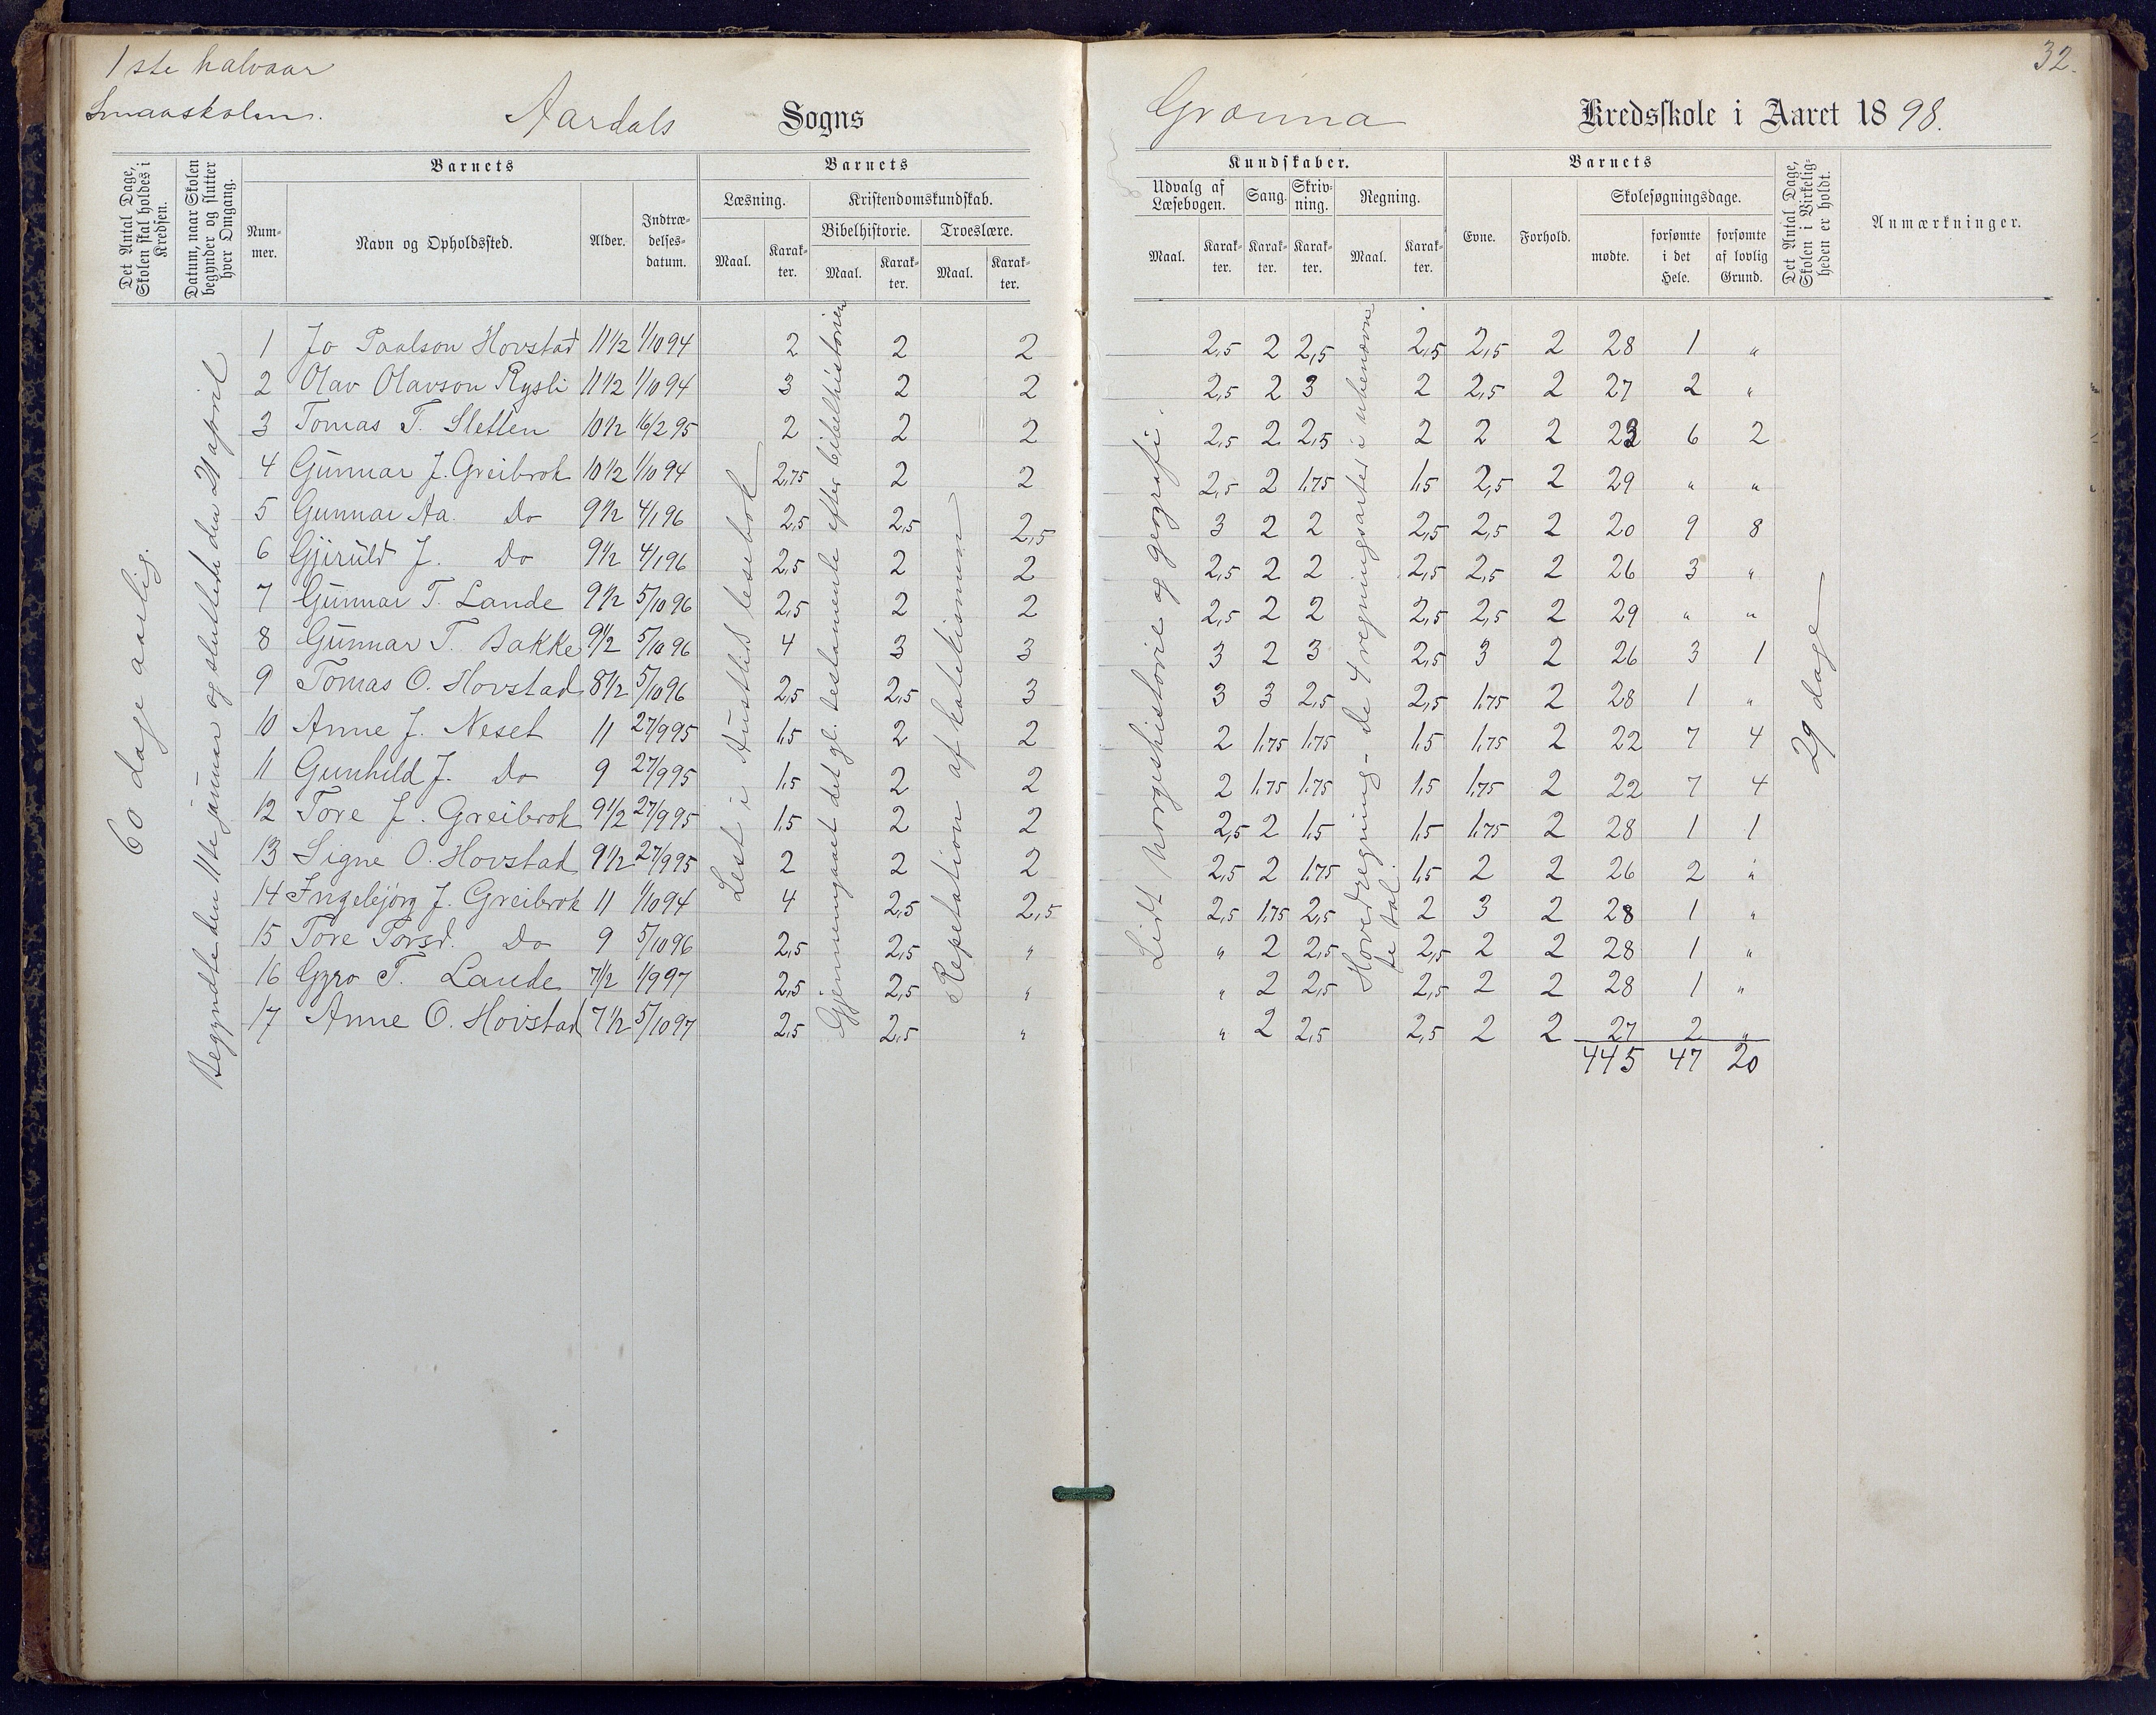 1ste halvaar
Smaaskolen.
Aardals Sogns
Det Antal Dage, Skolen skal holdes i Kredsen.
Datum, naar Skolen begynder og slutter hver Omgang.
Barnets
Nummer.
Navn og Opholdssted.
Alder.
Indtrædelses-datum.
Barnets
Læsning.
Maal.
Karakter.
Kristendomskundskab.
Bibelhistorie.
Maal.
Karakter.
Troeslære.
Maal.
Karakter.
60 dage aarlig.
Begyndte den 11te januar og sluttede den 21 april
Lest i Austlids lesebok
Gjennemgaaet det gl. testamente efter bibelhistorien
Repetation af katekismum
1 Jo Paalson Hovstad 11 1/2 1/10 94 2 2 2
2 Olav Olavson Rysli 11 1/2 1/10 94 3 2 2
3 Tomas T. Sletten 10 1/2 16/2 95 2 2 2
4 Gunnar J. Greibrok 10 1/2 1/10 94 2,75 2 2
5 Gunnar Aa. Do 9 1/2 4/1 96 2,5 2,5 2,5
6 Gjeruld J. Do 9 1/2 4/1 96 2,5 2 2
7 Gunnar T. Lande 9 1/2 5/10 96 2,5 2 2
8 Gunnar T. Bakke 9 1/2 5/10 96 4 3 3
9 Tomas O. Hovstad 8 1/2 5/10 96 2,5 2,5 3
10 Anne J. Neset 11 27/9 95 1,5 2 2
11 Gunhild J. Do 9 27/9 95 1,5 2 2
12 Tore J. Greibrok 9 1/2 27/9 95 1,5 2 2
13 Signe O. Hovstad 9 1/2 27/9 95 2 2 2
14 Ingebjørg J. Greibrok 11 1/10 94 4 2,5 2,5
15 Tore Torsd. Do 9 5/10 96 2,5 2,5 "
16 Gyro T. Lande 7 1/2 1/9 97 2,5 2,5 "
17 Anne O. Hovstad 7 1/2 5/10 97 2,5 2,5 "
32.
Grønna Kredsskole i Aaret 1898.
Kundskaber.
Udvalg af Læsebogen.
Maal.
Karakter.
Sang.
Karakter.
Skrivning.
Karakter.
Regning.
Maal.
Karakter.
Barnets
Evne.
Forhold.
Skolesøgningsdage.
mødte.
forsømte i det Hele.
forsømte af lovlig Grund.
Det Antal Dage, Skolen i Virkeligheden er holdt.
Anmærkninger.
Lidt Norgeshistorie og geografi.
Hovedregning - de 4 regningsarter i ubenævnte tal.
29 dage
2,5 2 2,5 2,5 2,5 2 28 1 "
2,5 2 3 2 2,5 2 27 2 "
2,5 2 2,5 2 2 2 23 6 2
2,5 2 1,75 1,5 2,5 2 29 " "
3 2 2 2,5 2,5 2 20 9 8
2,5 2 2 2,5 2,5 2 26 3 "
2,5 2 2 2,5 2,5 2 29 " "
3 2 3 2,5 3 2 26 3 1
3 3 2,5 2,5 1,75 2 28 1 "
2 1,75 1,75 1,5 1,75 2 22 7 4
2 1,75 1,75 1,5 1,75 2 22 7 4
2,5 2 1,5 1,5 1,75 2 28 1 1
2,5 2 1,75 1,5 2 2 26 2 "
2,5 1,75 2,5 2 3 2 28 1 "
" 2 2,5 2,5 2 2 28 1 "
" 2 2,5 2,5 2 2 28 1 "
" 2 2,5 2,5 2 2 27 2 "
445 47 20